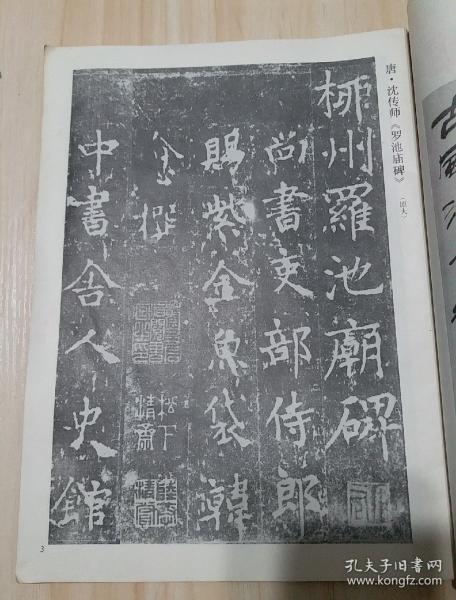 唐·沈传师《罗池庙碑》
（原大）
柳州羅池廟碑
尚書吏部侍郎
賜紫金魚袋韓
愈撰
松下
清齋
中書舍人史館
3
孔夫子旧书网
www.kongfz.com